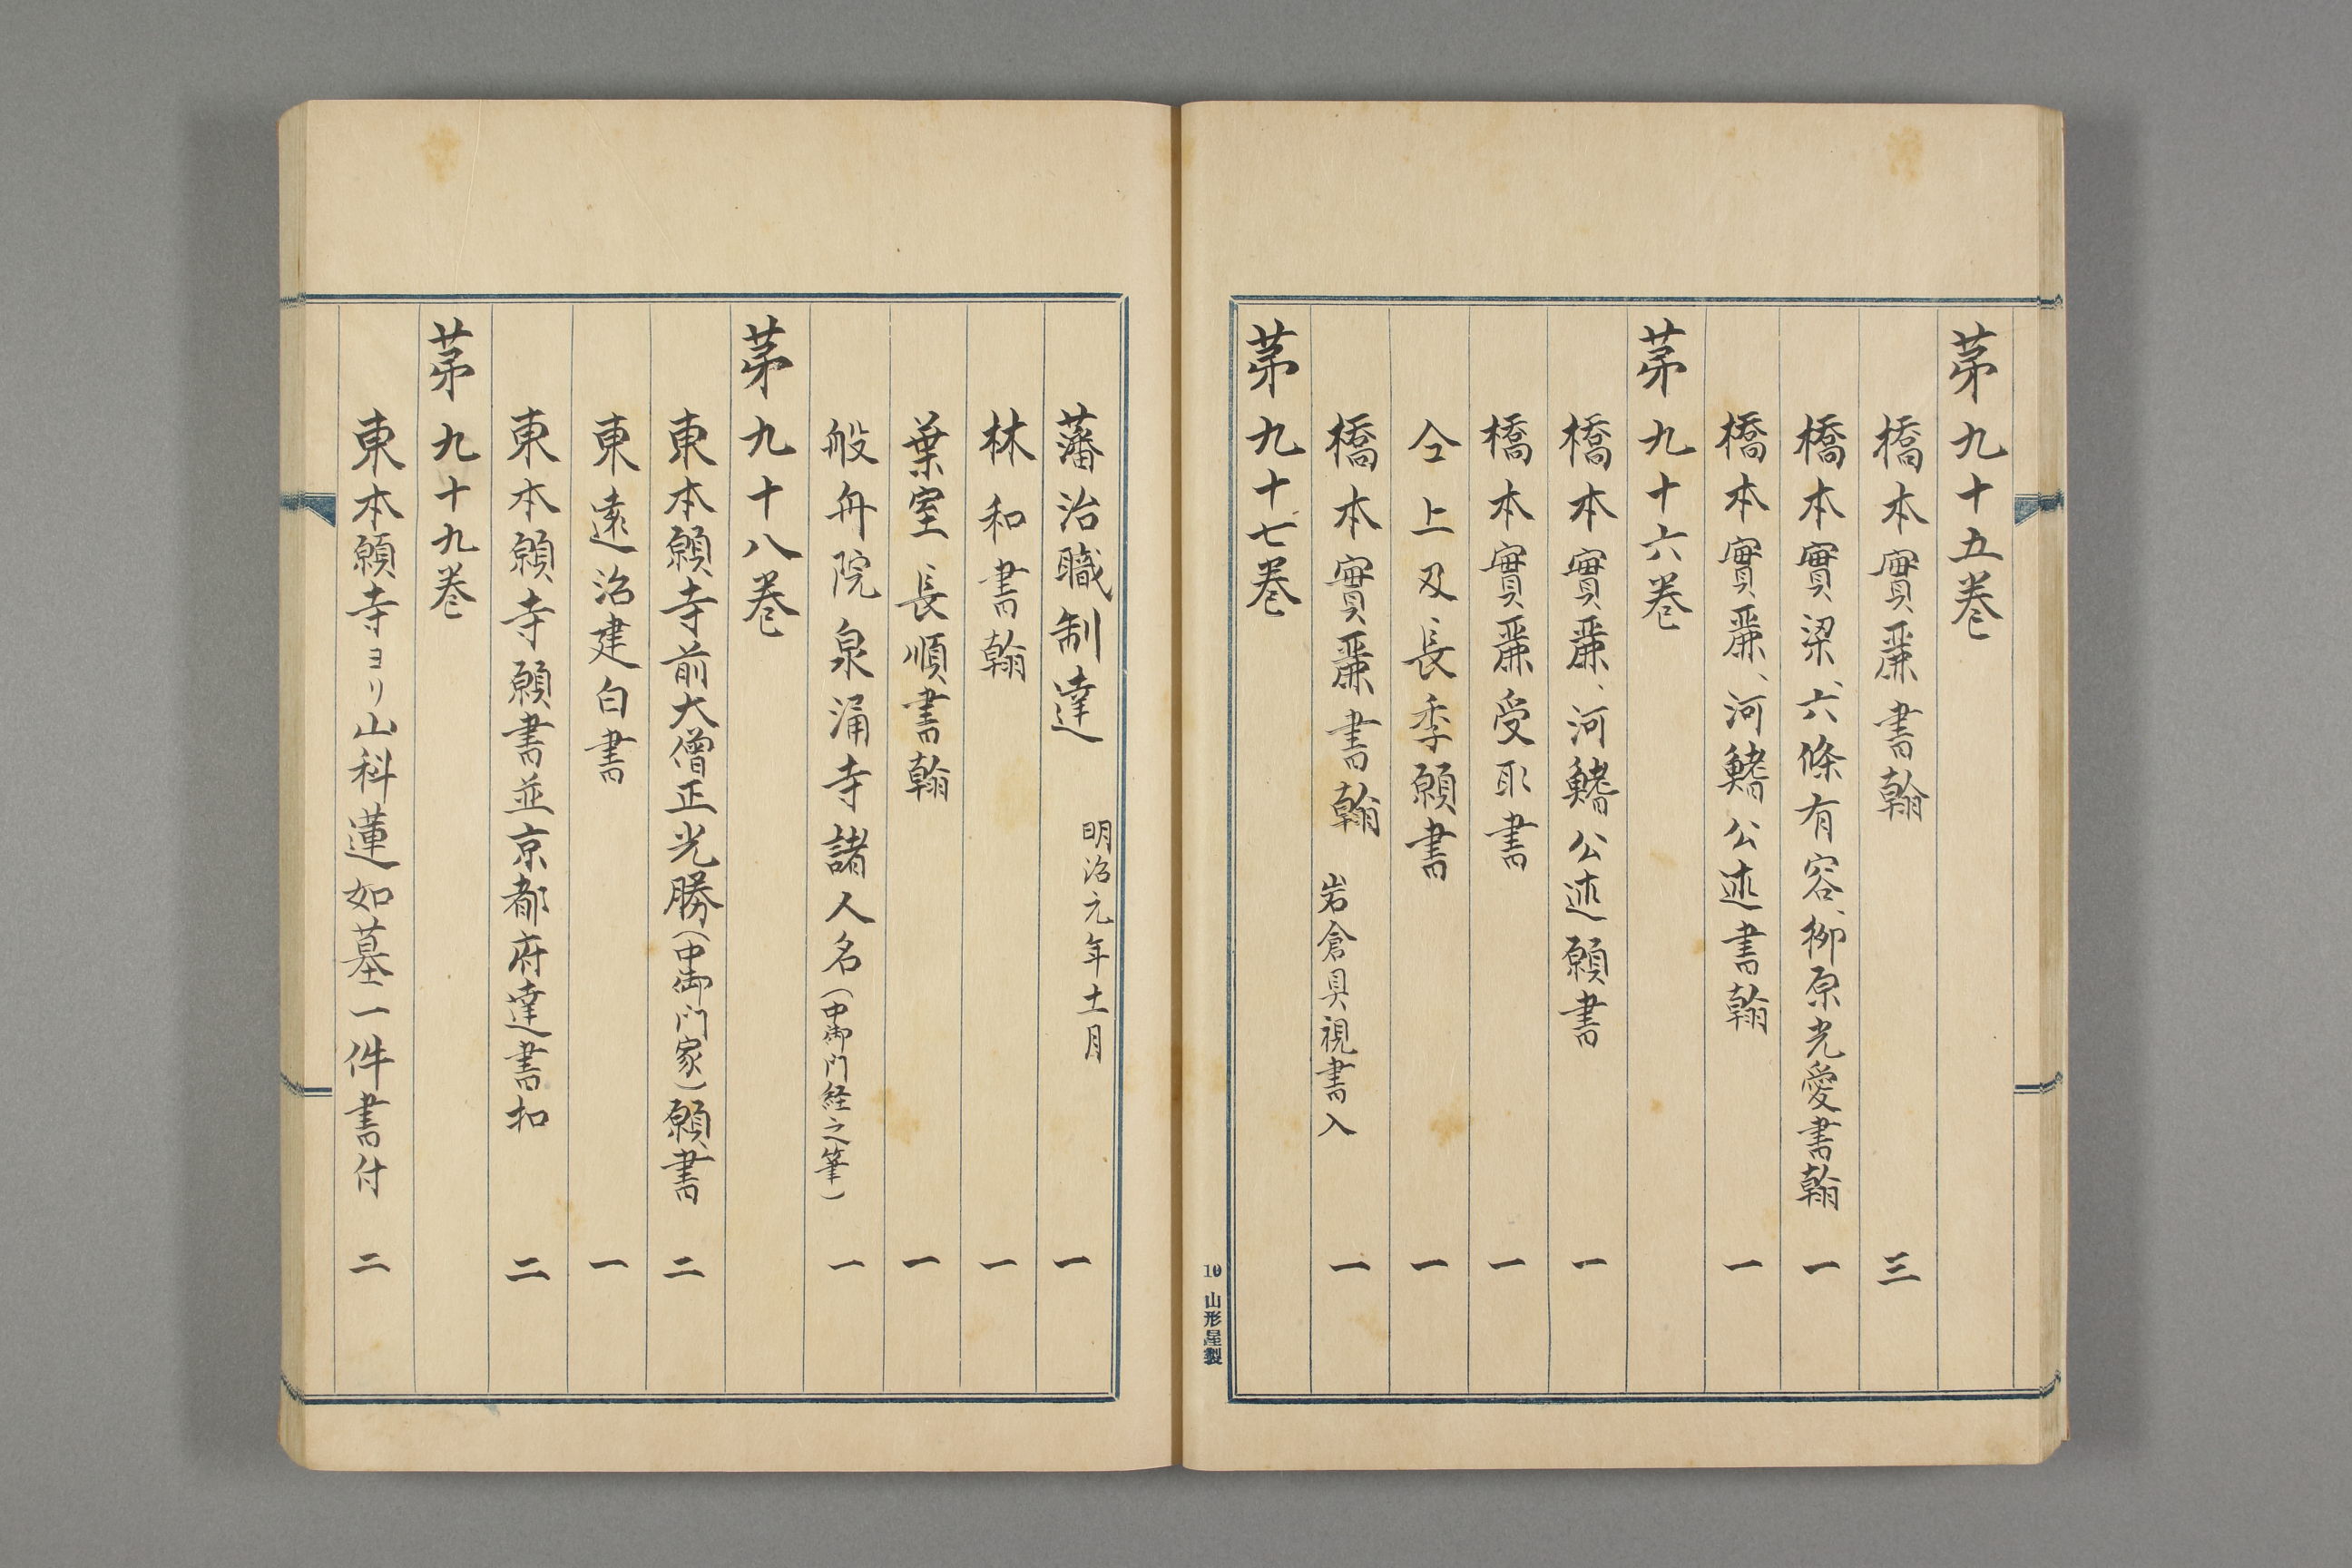 第九十五巻
橋本實麗書翰 三
橋本實梁、六條有容、柳原光愛書翰 一
橋本實麗、河鰭公述書翰 一
第九十六巻
橋本實麗、河鰭公述願書 一
橋本實麗受取書 一
仝上及長季願書 一
橋本實麗書翰 岩倉具視書入 一
第九十七巻
10 山形屋製
藩治職制達 明治元年十一月 一
林和書翰 一
葉室長順書翰 一
般舟院泉涌寺諸人名(中御門経之筆) 一
第九十八巻
東本願寺前大僧正光勝(中御門家)願書 二
東遠治建白書 一
東本願寺願書並京都府達書扣 二
第九十九巻
東本願寺ヨリ山科蓮如墓一件書付 二